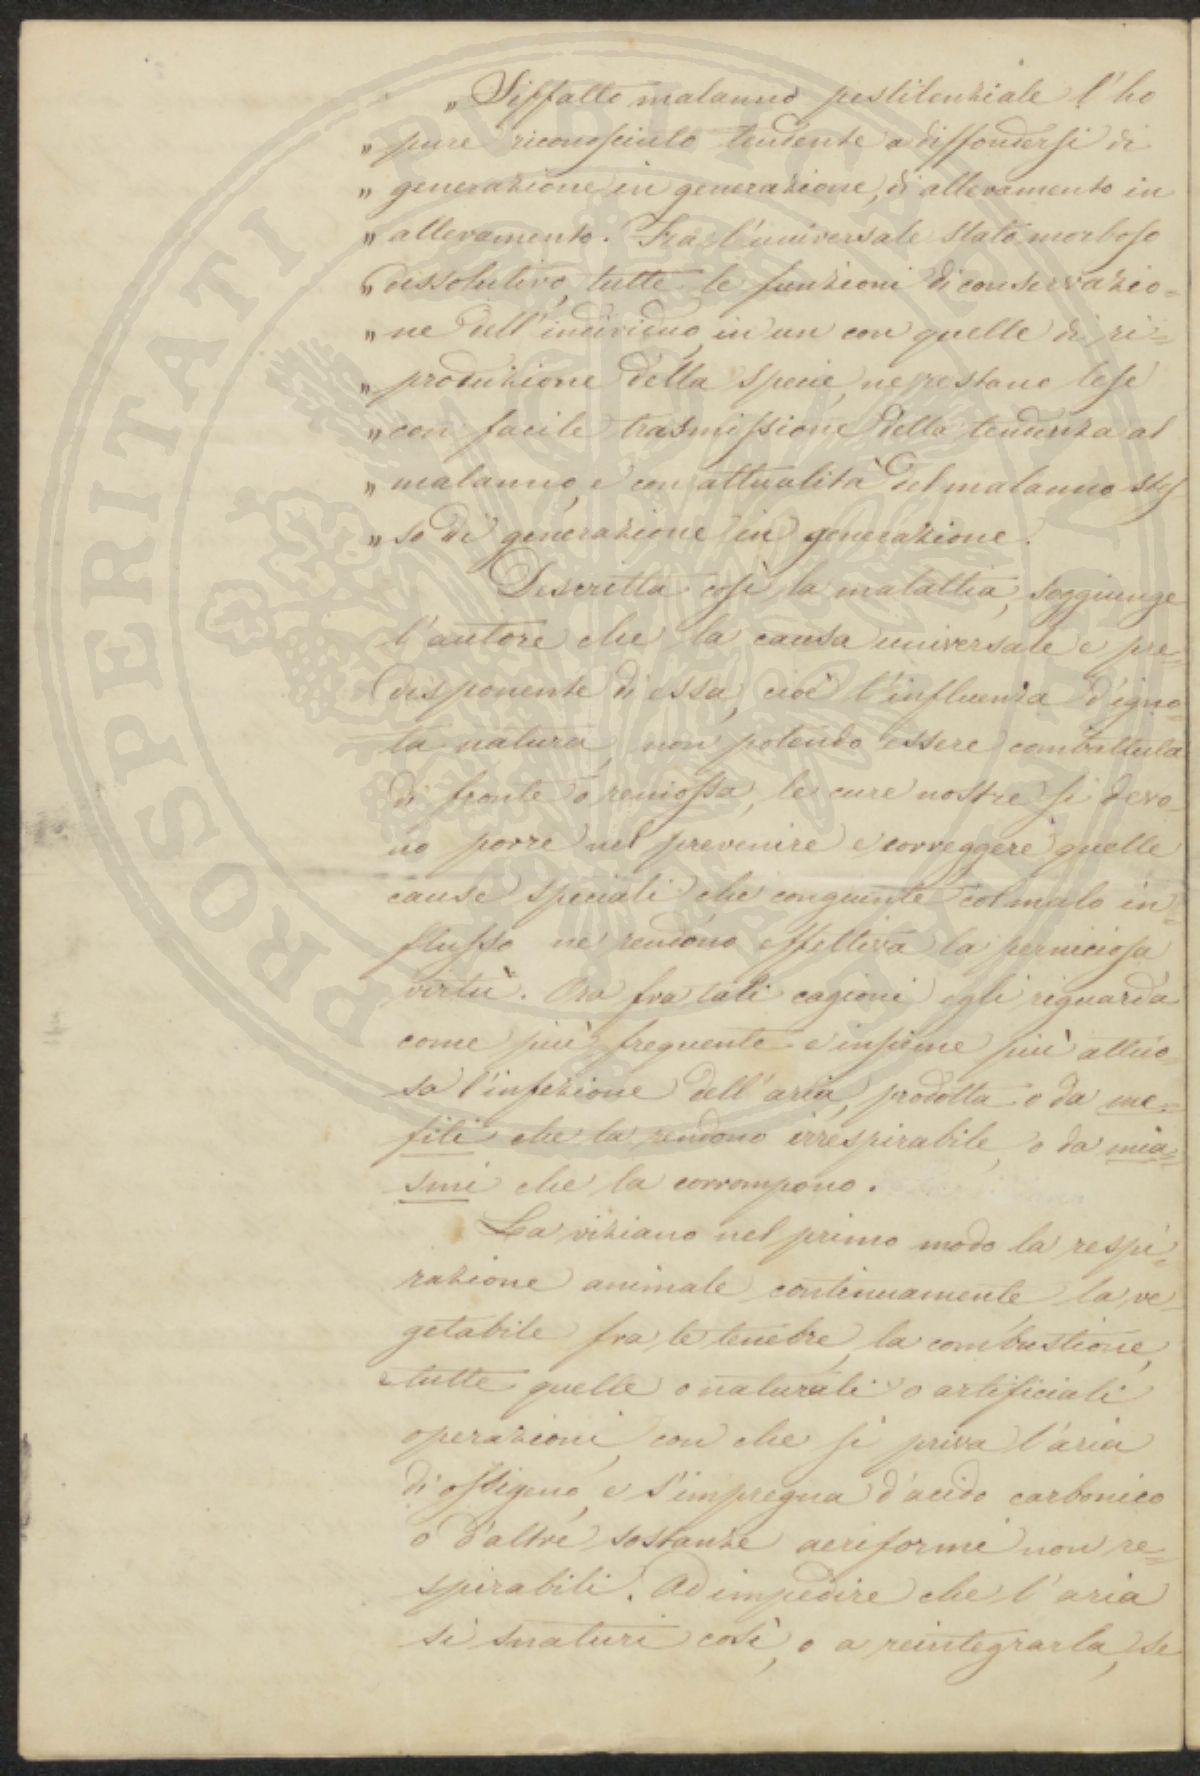 „ Siffatto malanno pestilenziale l'ho
„ pure riconosciuto tendente a diffondersi di
„ generazione in generazione, di allevamento in
„ allevamento. Fra l'universale stato morboso
„ dissolutivo, tutte le funzioni di conservazio=
„ ne dell'individuo, in un con quelle di ri=
„ produzione della specie, ne restano lese
„ con facile trasmissione della tendenza al
„ malanno, e con attualità del malanno stes
„ so di generazione in generazione.
Descritta così la malattia, soggiunge
l'autore che la causa universale e pre=
disponente di essa, cioè l'influenza d'igno=
ta natura, non potendo essere combattuta
di fronte o remossa, le cure nostre si devo=
no porre nel prevenire e correggere quelle
cause speciali che congiunte col malo in=
flusso ne rendono effettiva la perniciosa
virtù. Ora fra tali cagioni egli riguarda
come più frequente e insieme più attuo=
sa l'infezione dell'aria, prodotta o da me=
fiti che la rendono irrespirabile, o da mia=
smi che la corrompono.
La viziano nel primo modo la respi=
razione animale continuamente, la ve=
getabile fra le tenebre, la combustione,
e tutte quelle o naturali o artificiali
operazioni, con che si priva l'aria
di ossigeno, e s'impregna d'acido carbonico
o d'altre sostanze aeriformi non re=
spirabili. Ad impedire che l'aria
si snaturi così, o a reintegrarla, se
PROSPERITATI PUBLICAE